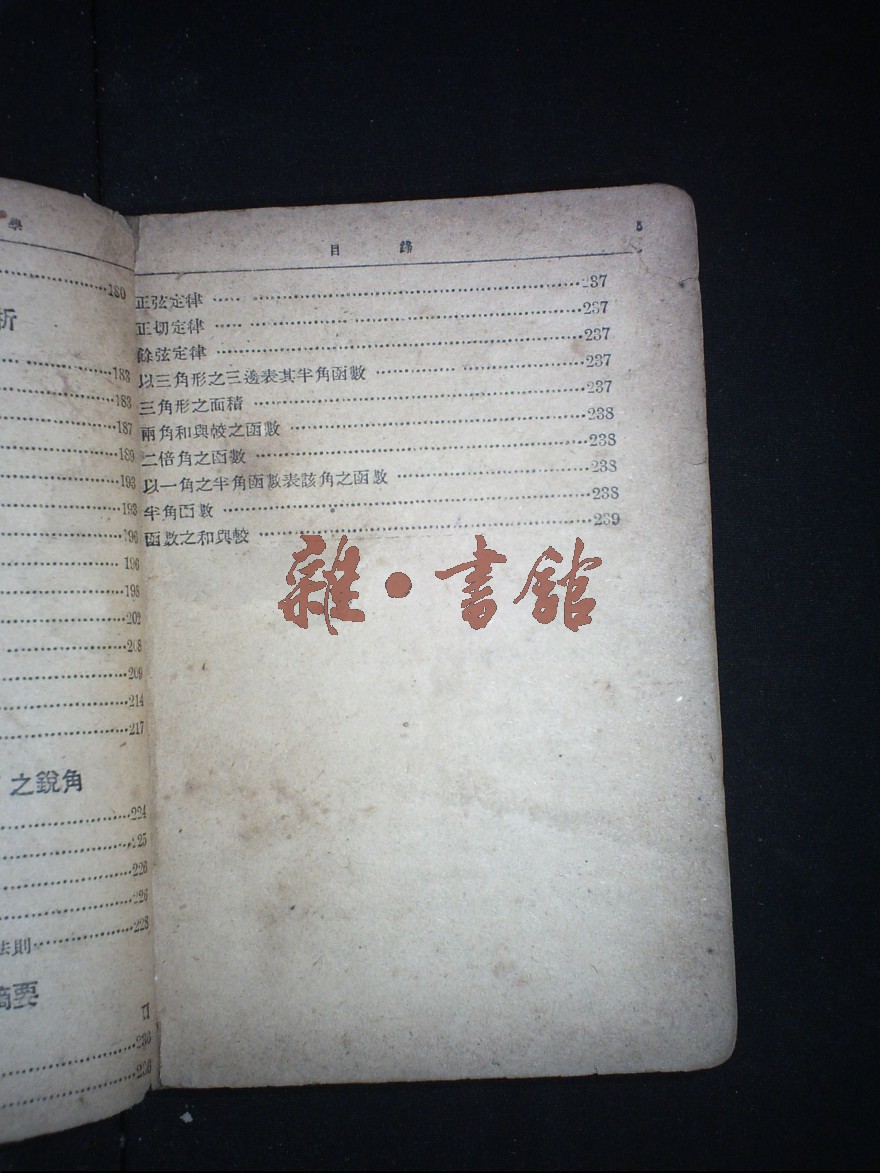 學
180
析
183
183
187
189
193
193
196
196
198
202
208
209
214
217
之銳角
224
225
226
226
228
法則
摘要
236
236
目錄 5
正弦定律 237
正切定律 237
餘弦定律 237
以三角形之三邊表其半角函數 237
三角形之面積 237
兩角和與較之函數 238
二倍角之函數 238
以一角之半角函數表該角之函數 238
半角函數 238
函數之和與較 239
雜·書舘